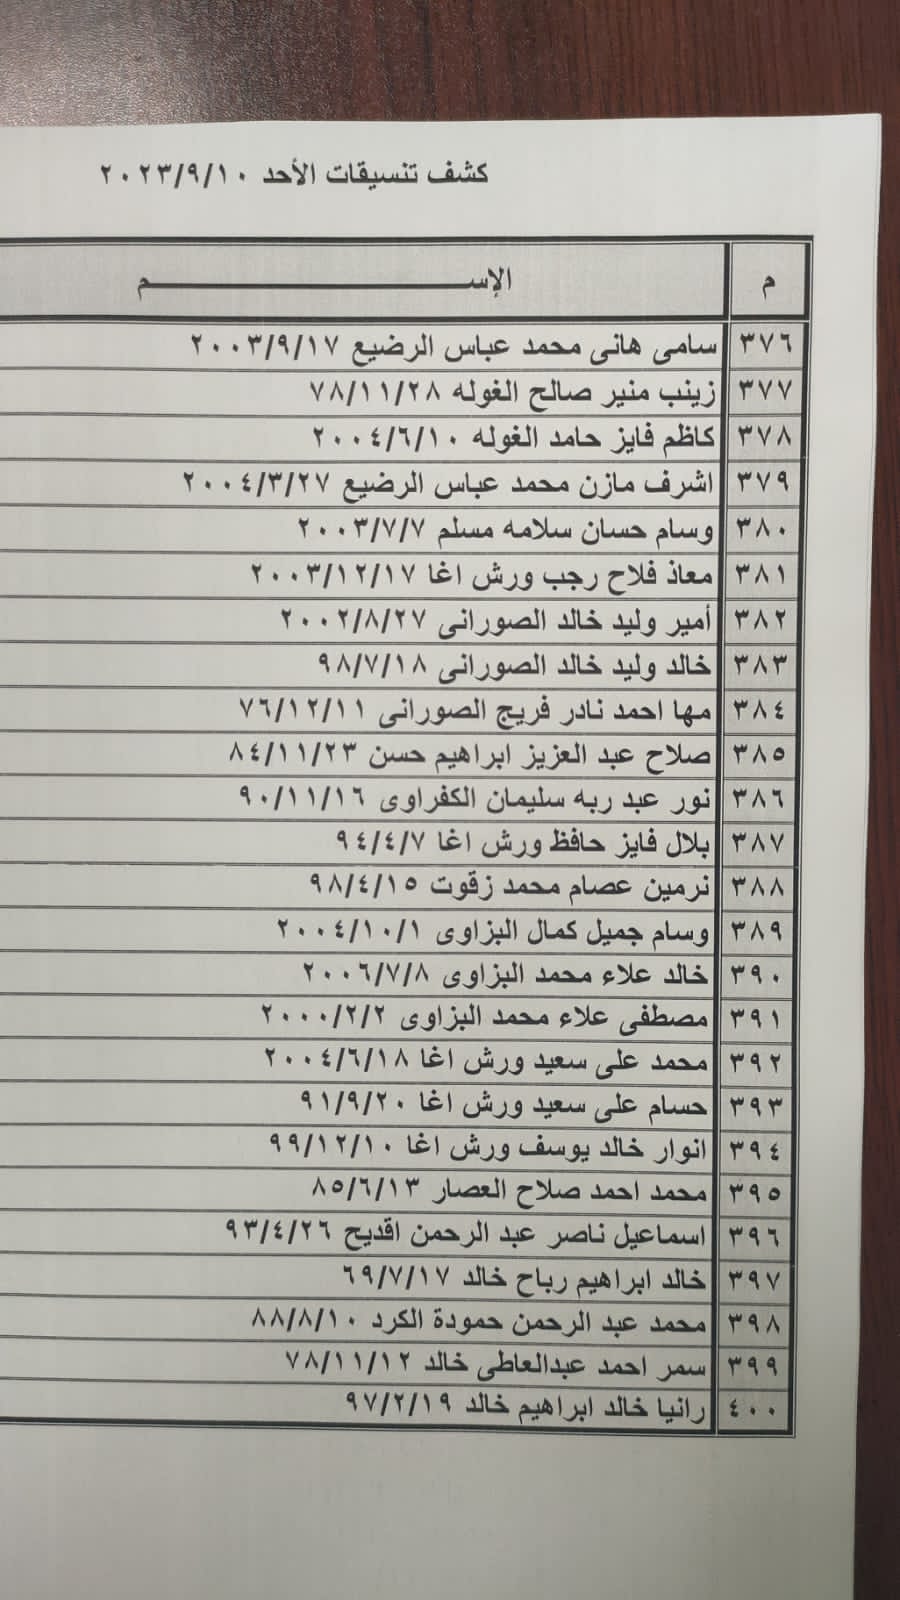 كشف تنسيقات الأحد ٢٠٢٣/٩/١٠
م الإســـــــــــــــــــم
٣٧٦ سامى هانى محمد عباس الرضيع ٢٠٠٣/٩/١٧
٣٧٧ زينب منير صالح الغوله ٧٨/١١/٢٨
٣٧٨ كاظم فايز حامد الغوله ٢٠٠٤/٦/١٠
٣٧٩ اشرف مازن محمد عباس الرضيع ٢٠٠٤/٣/٢٧
٣٨٠ وسام حسان سلامه مسلم ٢٠٠٣/٧/٧
٣٨١ معاذ فلاح رجب ورش اغا ٢٠٠٣/١٢/١٧
٣٨٢ أمير وليد خالد الصورانى ٢٠٠٢/٨/٢٧
٣٨٣ خالد وليد خالد الصورانى ٩٨/٧/١٨
٣٨٤ مها احمد نادر فريج الصورانى ٧٦/١٢/١١
٣٨٥ صلاح عبد العزيز ابراهيم حسن ٨٤/١١/٢٣
٣٨٦ نور عبد ربه سليمان الكفراوى ٩٠/١١/١٦
٣٨٧ بلال فايز حافظ ورش اغا ٩٤/٤/٧
٣٨٨ نرمين عصام محمد زقوت ٩٨/٤/١٥
٣٨٩ وسام جميل كمال البزاوى ٢٠٠٤/١٠/١
٣٩٠ خالد علاء محمد البزاوى ٢٠٠٦/٧/٨
٣٩١ مصطفى علاء محمد البزاوى ٢٠٠٠/٢/٢
٣٩٢ محمد على سعيد ورش اغا ٢٠٠٤/٦/١٨
٣٩٣ حسام على سعيد ورش اغا ٩١/٩/٢٠
٣٩٤ انوار خالد يوسف ورش اغا ٩٩/١٢/١٠
٣٩٥ محمد احمد صلاح العصار ٨٥/٦/١٣
٣٩٦ اسماعيل ناصر عبد الرحمن اقديح ٩٣/٤/٢٦
٣٩٧ خالد ابراهيم رباح خالد ٦٩/٧/١٧
٣٩٨ محمد عبد الرحمن حمودة الكرد ٨٨/٨/١٠
٣٩٩ سمر احمد عبدالعاطى خالد ٧٨/١١/١٢
٤٠٠ رانيا خالد ابراهيم خالد ٩٧/٢/١٩